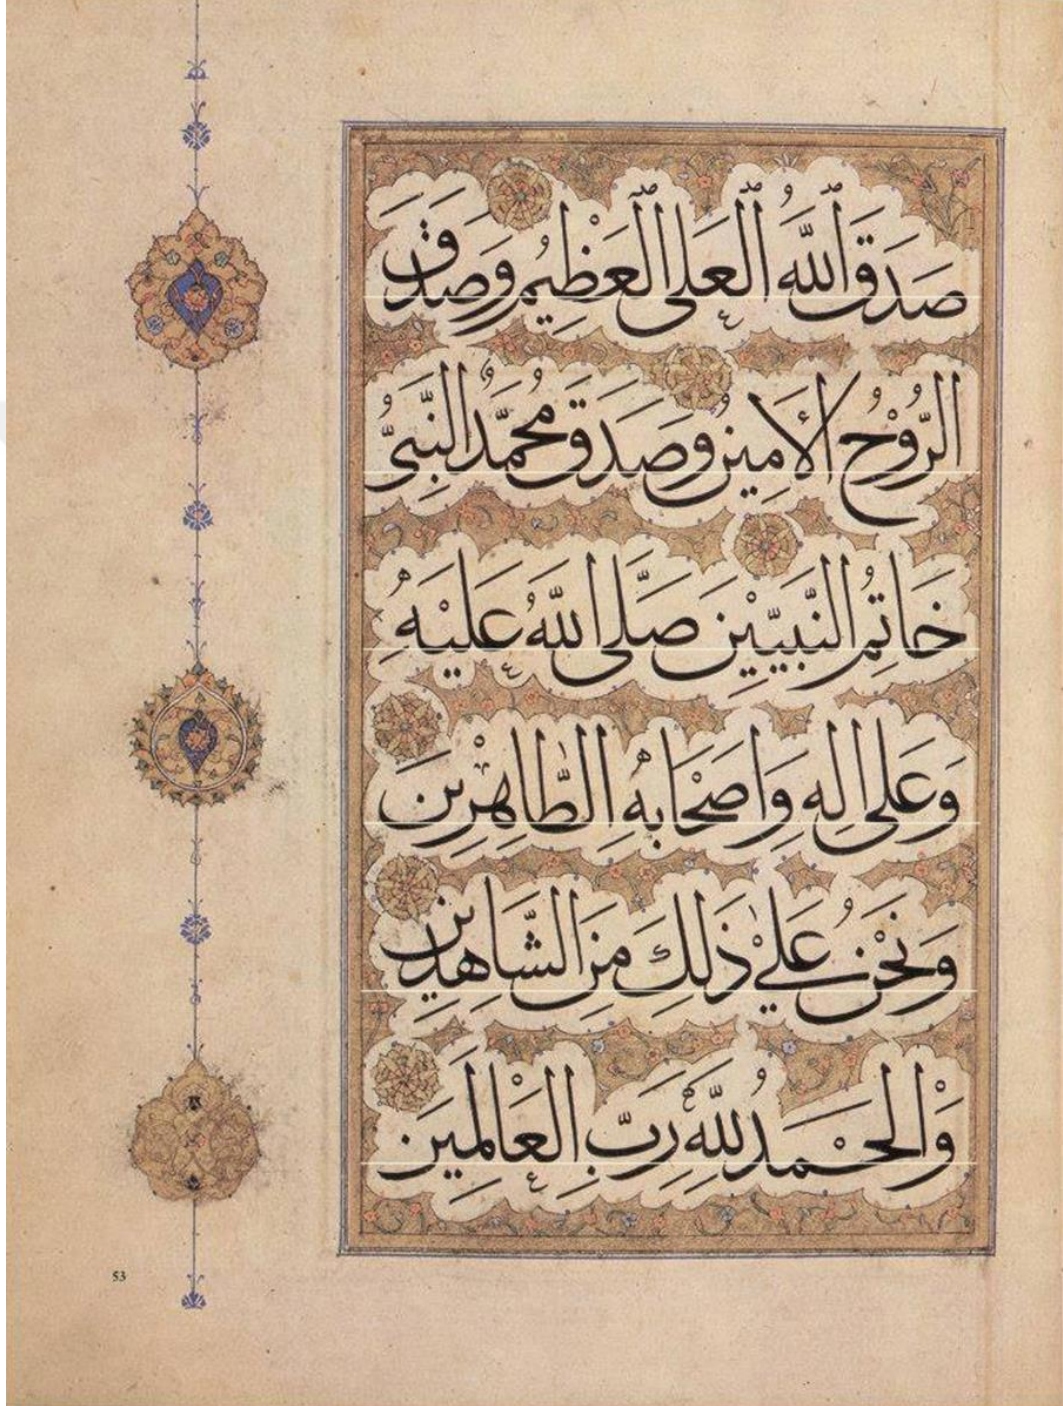 صَدَقَ ٱللَّهُ ٱلْعَلِيُّ ٱلْعَظِيمُ وَصَدَقَ
الرُّوْحُ الْأَمِينُ وَصَدَقَ مُحَمَّدٌ النَّبِيُّ
خَاتِمُ النَّبِيِّيْنَ صَلَّى اللَّهُ عَلَيْهِ
وَعَلَى الِهِ وَاَصْحَابِهِ الطَّاهِرِيْنَ
وَنَحْنُ عَلَيْ ذَلِكَ مِنَ الشَّاهِدِيْنَ
وَالْحَمْدُ لِلَّهِ رَبِّ الْعَالَمِيْنَ
53